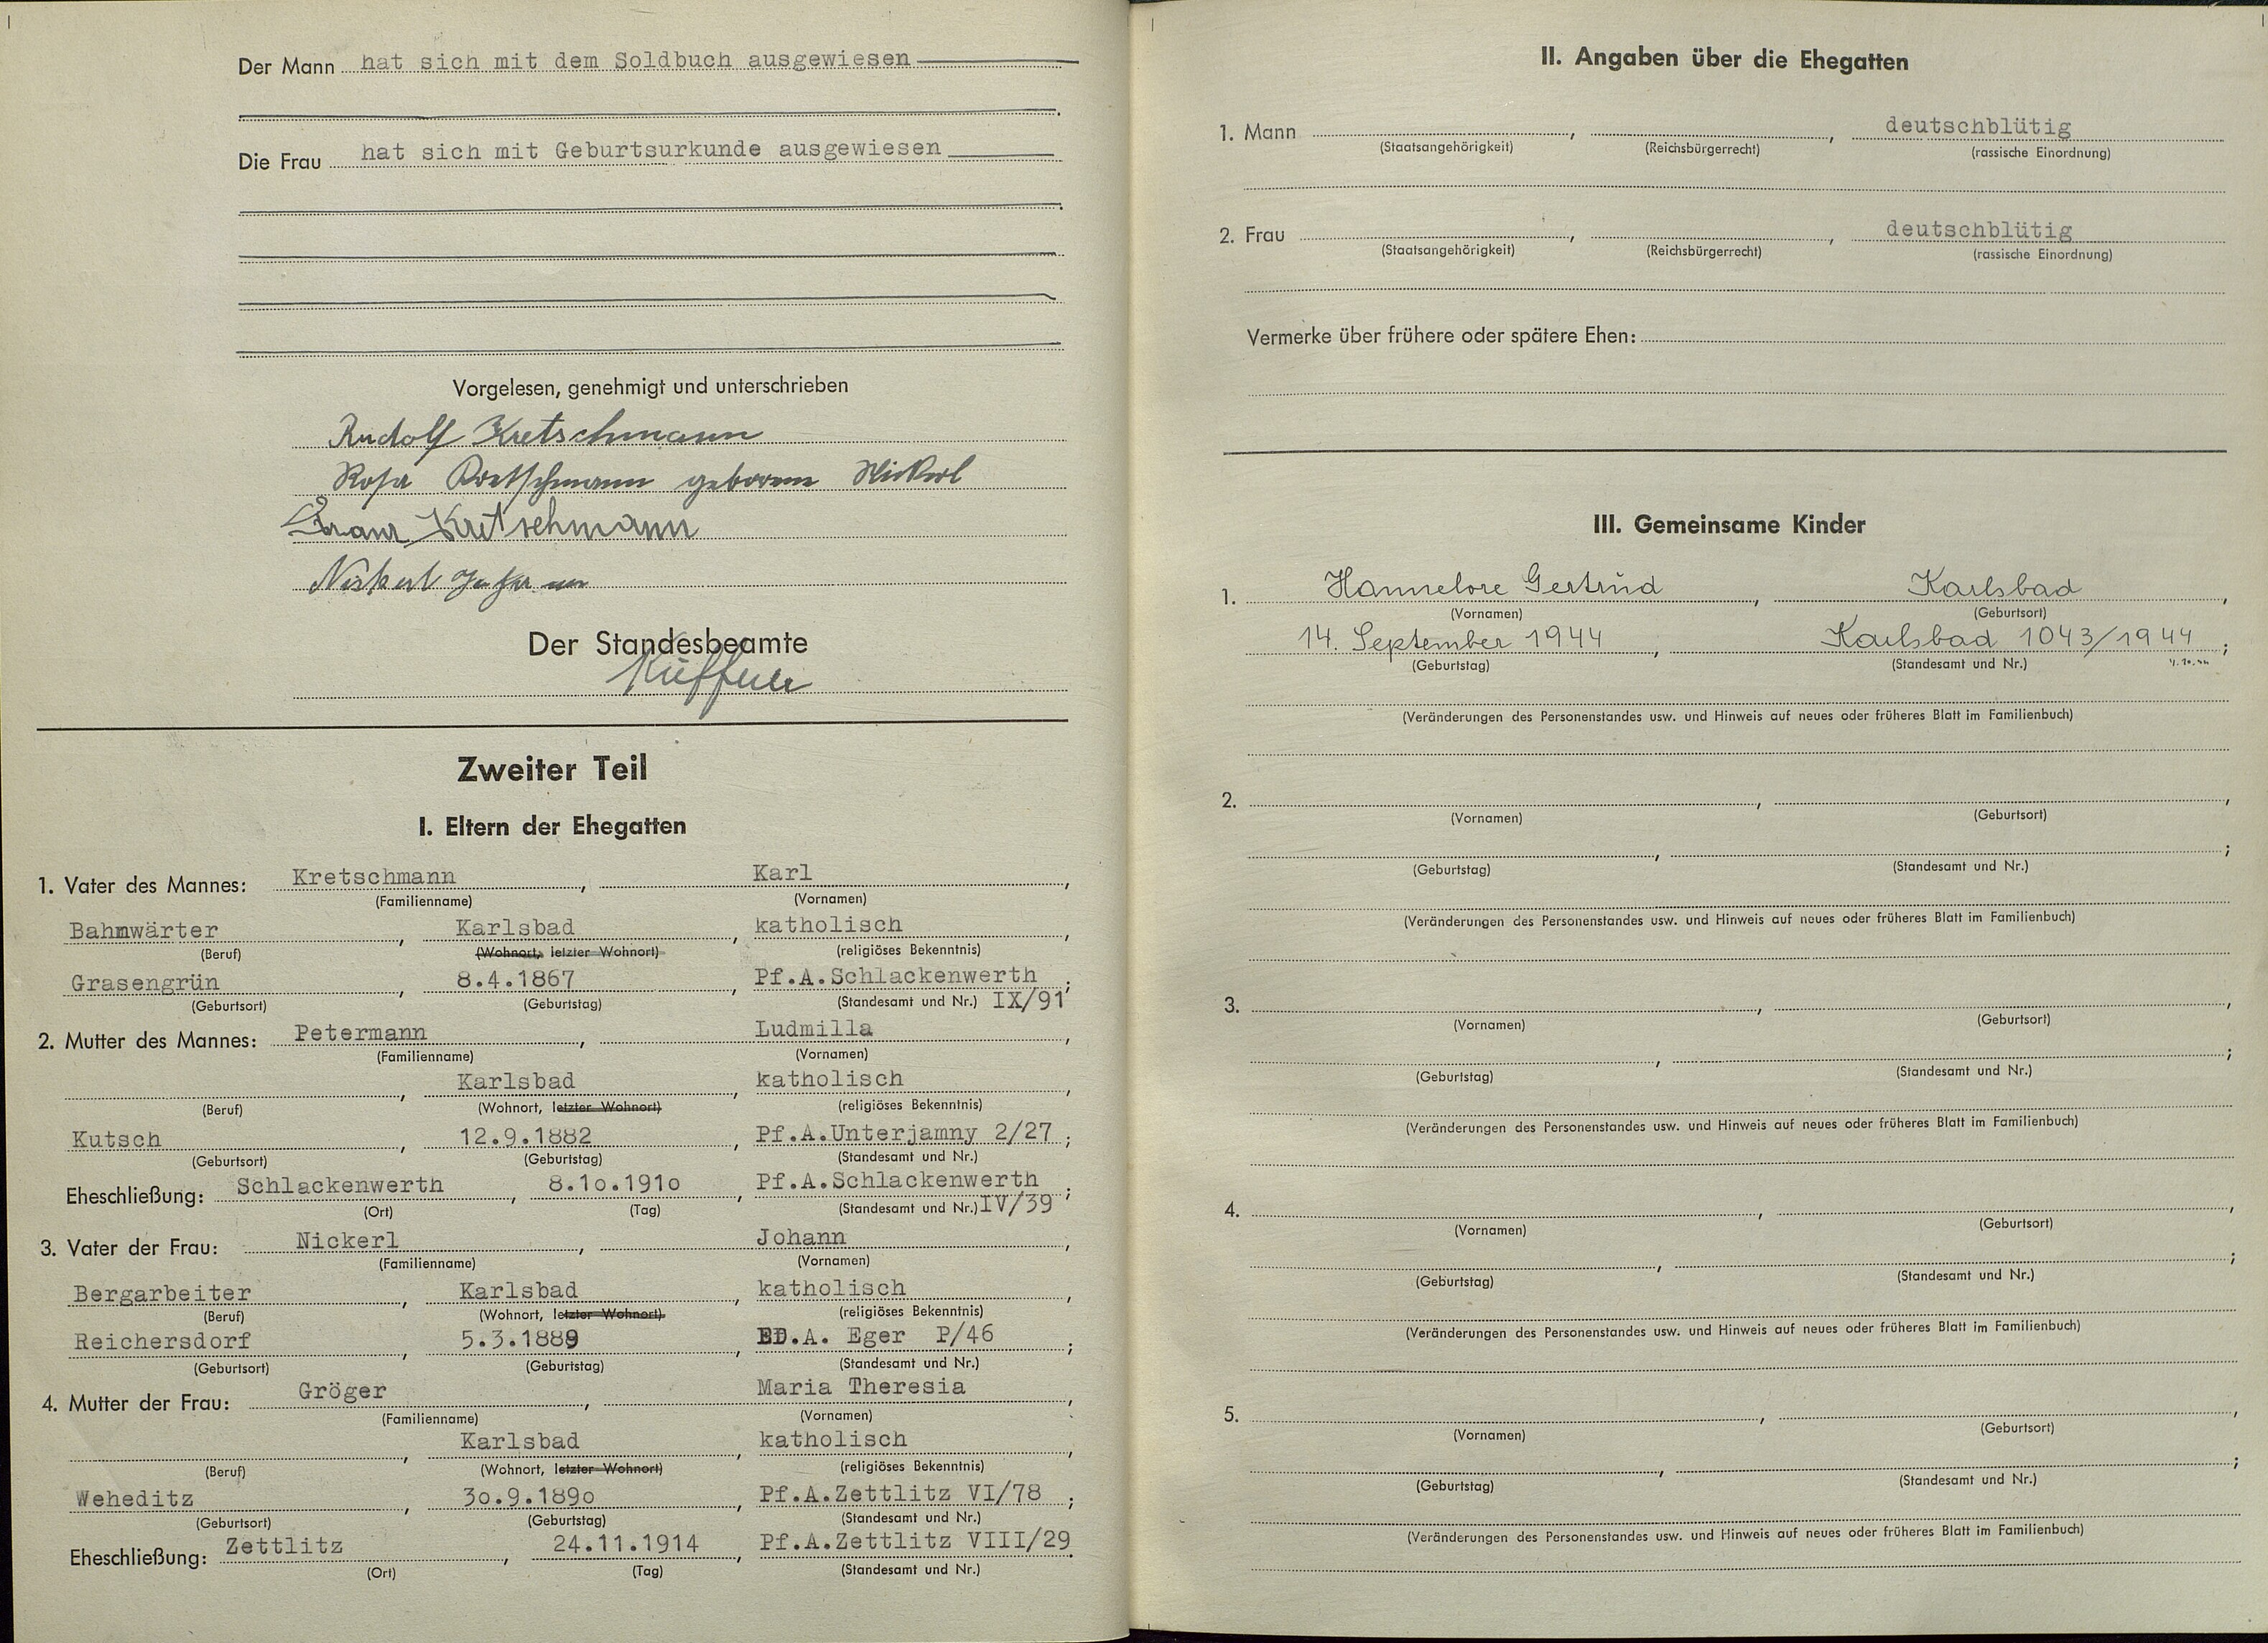 Der Mann hat sich mit dem Soldbuch ausgewiesen
Die Frau hat sich mit Geburtsurkunde ausgewiesen
Vorgelesen, genehmigt und unterschrieben
Rudolf Kretschmann
Rosa Kretschmann geborene Nickerl
Franz Kretschmann
Nickerl
Der Standesbeamte
Zweiter Teil
I. Eltern der Ehegatten
1. Vater des Mannes: Kretschmann, Karl,
(Familienname) (Vornamen)
Bahnwärter, Karlsbad, katholisch,
(Beruf) (Wohnort, letzter Wohnort) (religiöses Bekenntnis)
Grasengrün, 8.4.1867, Pf.A.Schlackenwerth;
(Geburtsort) (Geburtstag) (Standesamt und Nr.) IX/91
2. Mutter des Mannes: Petermann, Ludmilla,
(Familienname) (Vornamen)
, Karlsbad, katholisch,
(Beruf) (Wohnort, letzter Wohnort) (religiöses Bekenntnis)
Kutsch, 12.9.1882, Pf.A.Unterjamny 2/27;
(Geburtsort) (Geburtstag) (Standesamt und Nr.)
Eheschließung: Schlackenwerth, 8.1o.191o, Pf.A.Schlackenwerth;
(Ort) (Tag) (Standesamt und Nr.) IV/39
3. Vater der Frau: Nickerl, Johann,
(Familienname) (Vornamen)
Bergarbeiter, Karlsbad, katholisch,
(Beruf) (Wohnort, letzter Wohnort) (religiöses Bekenntnis)
Reichersdorf, 5.3.1889, .A. Eger P/46;
(Geburtsort) (Geburtstag) (Standesamt und Nr.)
4. Mutter der Frau: Gröger, Maria Theresia,
(Familienname) (Vornamen)
, Karlsbad, katholisch,
(Beruf) (Wohnort, letzter Wohnort) (religiöses Bekenntnis)
Weheditz, 3o.9.189o, Pf.A.Zettlitz VI/78;
(Geburtsort) (Geburtstag) (Standesamt und Nr.)
Eheschließung: Zettlitz, 24.11.1914, Pf.A.Zettlitz VIII/29.
(Ort) (Tag) (Standesamt und Nr.)
II. Angaben über die Ehegatten
1. Mann , , deutschblütig
(Staatsangehörigkeit) (Reichsbürgerrecht) (rassische Einordnung)
2. Frau , , deutschblütig
(Staatsangehörigkeit) (Reichsbürgerrecht) (rassische Einordnung)
Vermerke über frühere oder spätere Ehen:
III. Gemeinsame Kinder
1. Hannelore Gertrud, Karlsbad,
(Vornamen) (Geburtsort)
14. September 1944, Karlsbad 1043/1944;
(Geburtstag) (Standesamt und Nr.)
(Veränderungen des Personenstandes usw. und Hinweis auf neues oder früheres Blatt im Familienbuch)
2. , ,
(Vornamen) (Geburtsort)
, ;
(Geburtstag) (Standesamt und Nr.)
(Veränderungen des Personenstandes usw. und Hinweis auf neues oder früheres Blatt im Familienbuch)
3. , ,
(Vornamen) (Geburtsort)
, ;
(Geburtstag) (Standesamt und Nr.)
(Veränderungen des Personenstandes usw. und Hinweis auf neues oder früheres Blatt im Familienbuch)
4. , ,
(Vornamen) (Geburtsort)
, ;
(Geburtstag) (Standesamt und Nr.)
(Veränderungen des Personenstandes usw. und Hinweis auf neues oder früheres Blatt im Familienbuch)
5. , ,
(Vornamen) (Geburtsort)
, ;
(Geburtstag) (Standesamt und Nr.)
(Veränderungen des Personenstandes usw. und Hinweis auf neues oder früheres Blatt im Familienbuch)